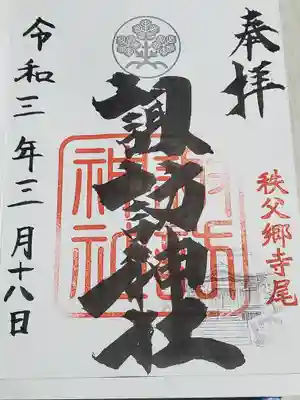 奉拝
秩父郷寺尾
諏訪神社
令和三年三月十八日